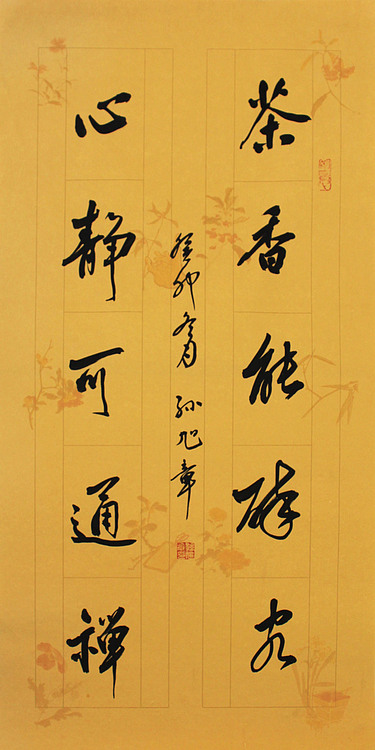 茶香能醉客
心静可通禪
癸卯冬月 孙旭章